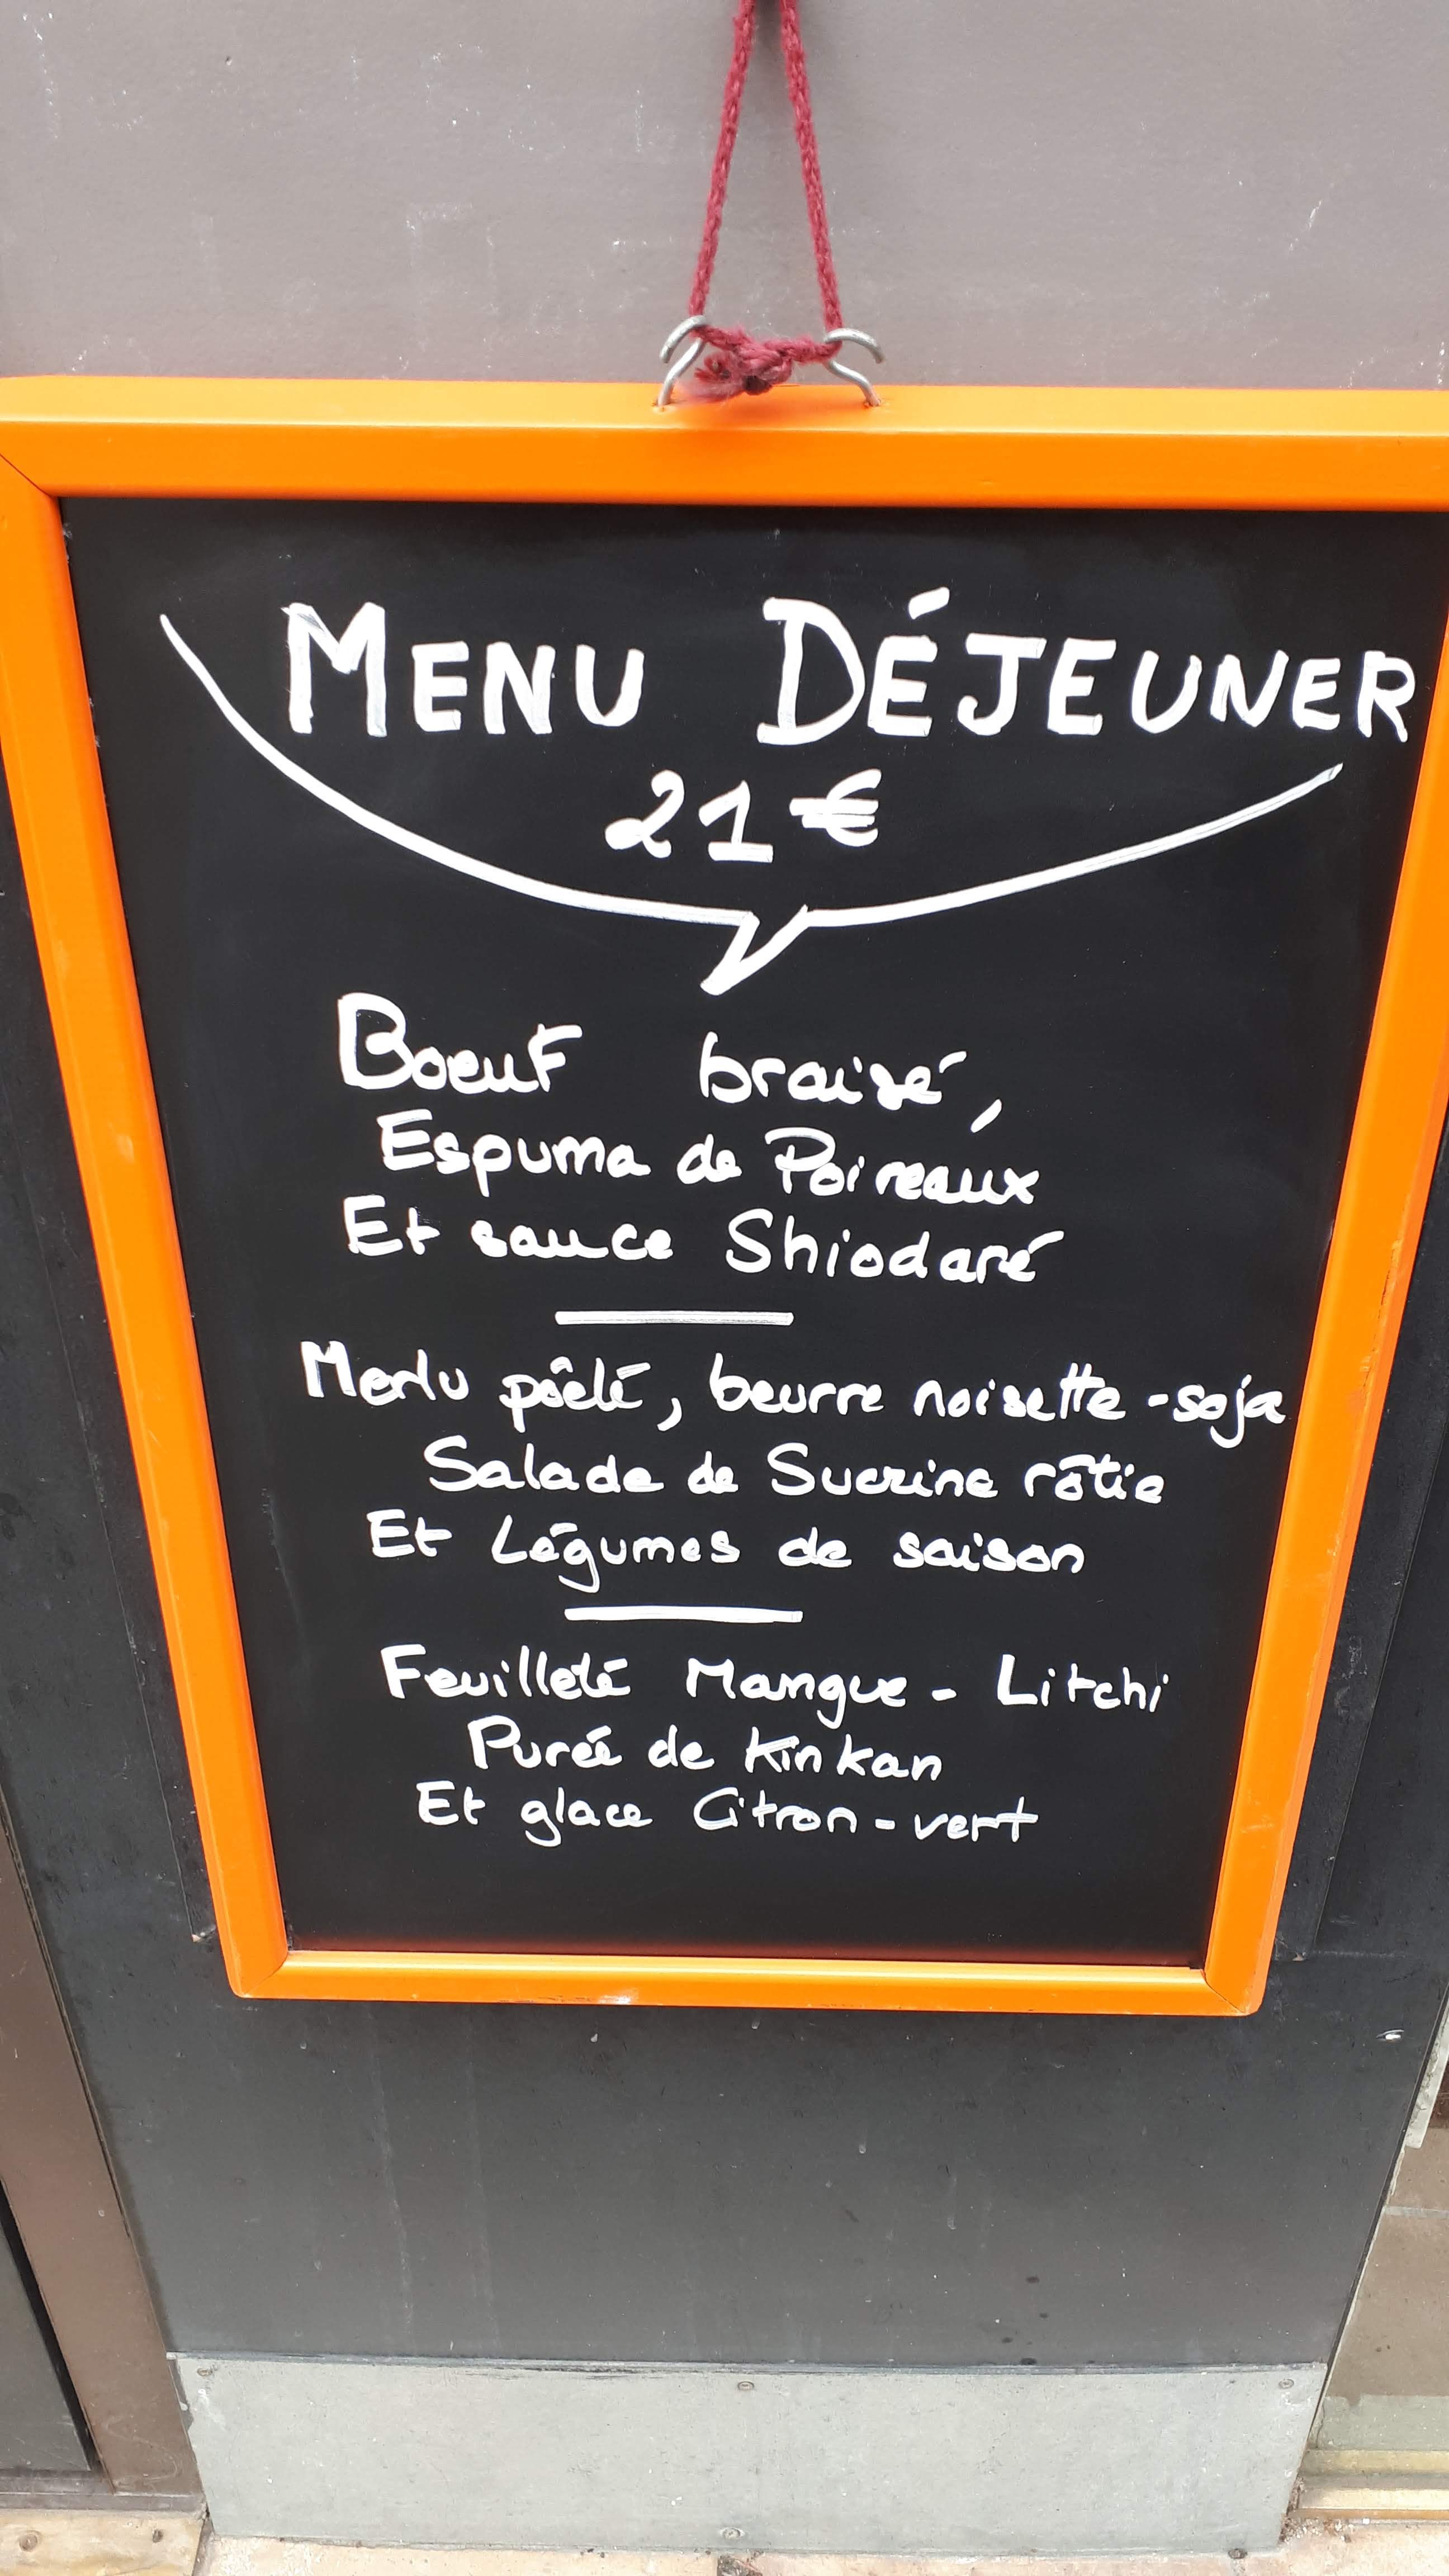 MENU DÉJEUNER
21€
Boeuf braisé,
Espuma de Poireaux
Et sauce Shiodaré
Merlu pôêlé, beurre noisette - soja
Salade de Sucrine rôtie
Et Légumes de saison
Feuilleté Mangue - Litchi
Purée de Kinkan
Et glace Citron - vert